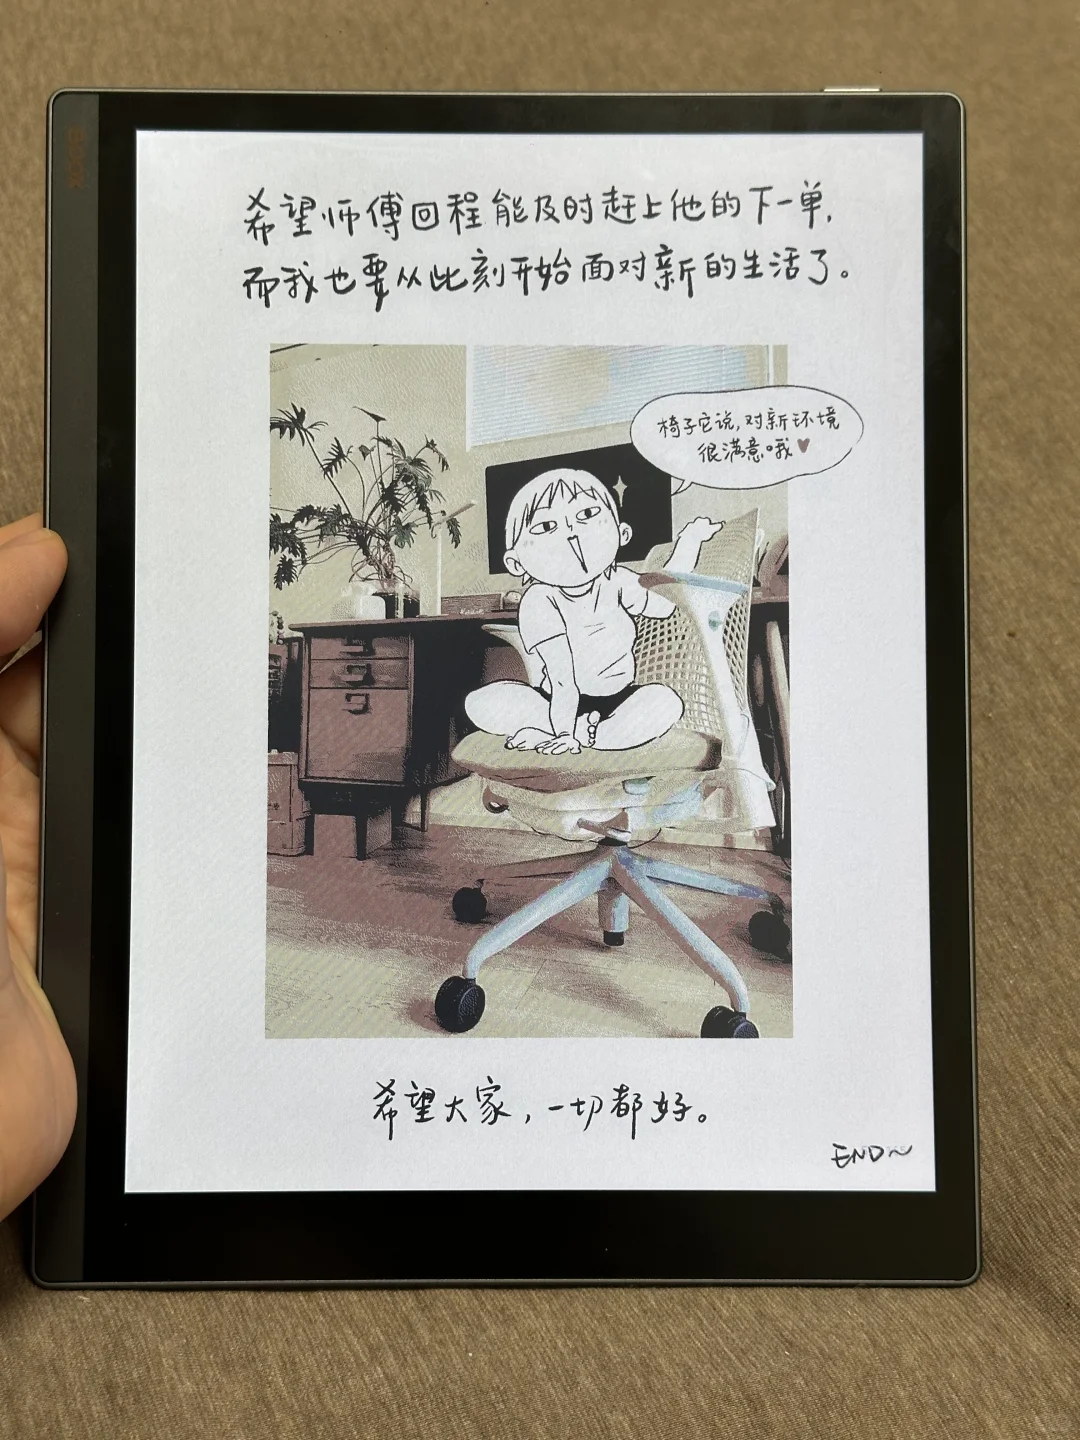 希望师傅回程能及时赶上他的下一单，
而我也要从此刻开始面对新的生活了。
椅子它说，对新环境
很满意哦♥
希望大家，一切都好。
END~